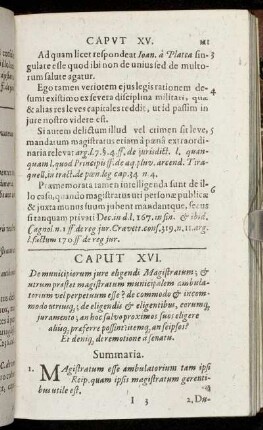 CAPVT XV.
Ad quam licet respondeat Ioan. à Platea sin- 3
gulare esse quod ibi non de unius sed de multo-
rum salute agatur.
Ego tamen veriorem ejus legis rationem de- 4
sumi existimo ex severa disciplina militari, quæ
& alias res leves capitales reddit, ut id passim in
jure nostro videre est.
Si autem delictum illud vel crimen sit leve, 5
mandatum magistratus etiam à pœnâ extraordi-
naria relevat arg. l. 7. §. 4. ff. de jurisdict. l. quan-
quam l. quod Principis ff. de aq. pluv. arcend. Tira-
quell. in tract. de pœn. leg cap. 34 n. 4.
Præmemorata tamen intelligenda sunt de il- 6
lo casu, quando magistratus uti personæ publicæ
& juxta munus suum jubent mandantque, secus
si tanquam privati Dec. in d. l. 167. in fin. & ibid.
Cagnol n. 1 ff de reg jur. Cravett. conf. 319, n. 11. arg.
l. factum 170 ff de reg jur.
CAPUT XVI.
De municipiorum jure eligendi Magistratum; &
utrum præstet magistratum municipalem ambula-
torium vel perpetuum esse? de commodo & incom-
modo utriusq; de eligendis & eligentibus, eorumq;
juramento; an hoc salvo proximos suos eligere
aliisq; præferre possint itemq; an seipsos?
Et deniq; de remotione à senatu.
Summaria.
1. MAgistratum esse ambulatorium tam ipsi
Reip. quam ipsis magistratum gerenti-
bus utile est.
I 3 2. Du-